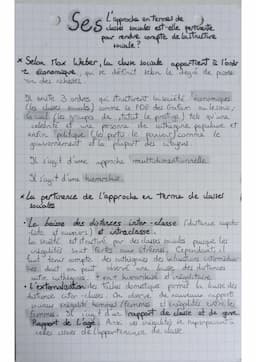 Ses L'approche en termes de
classes sociales est-elle pertinente
pour rendre compte de la structure
sociale ?
* Selon Max Weber, la classe sociale appartient à l'ordr
e économique, qui se définit selon le degré de posse
ssion des richesses.
Il existe 3 ordres qui structurent la société : économiques
(les classes sociales) comme le PDG des
social (les groupes de statut, le prestige) tels qu'une
célébrité et une personne de catégorie populaire et
enfin politique (les partis, le pouvoir) comme le
gouvernement et la plupart des citoyens.
Il s'agit d'une approche multidimensionnelle.
Il s'agit d'une hiérarchie.
* La pertinence de l'approche en terme de classes
sociales
• La baisse des distances inter-classe (distance
et ouvriers) et intraclasse.
La société est structurée par des classes sociales puisque les
inégalités sont fortes entre elles. Cependant, il
faut tenir compte des catégories
dont on peut une baisse des distances
entre catégories
• L'externalisation des tâches domestique permet la baisse des
distance inter-classe. On observe de nouveaux rapports
inégalité hommes/femmes, et inégalités entre les
femmes. Il s'agit d'un rapport de classe et de genre.
Rapport de l'âge : Ainsi ces inégalités se superposent à
celles issues de l'appartenance de classe.